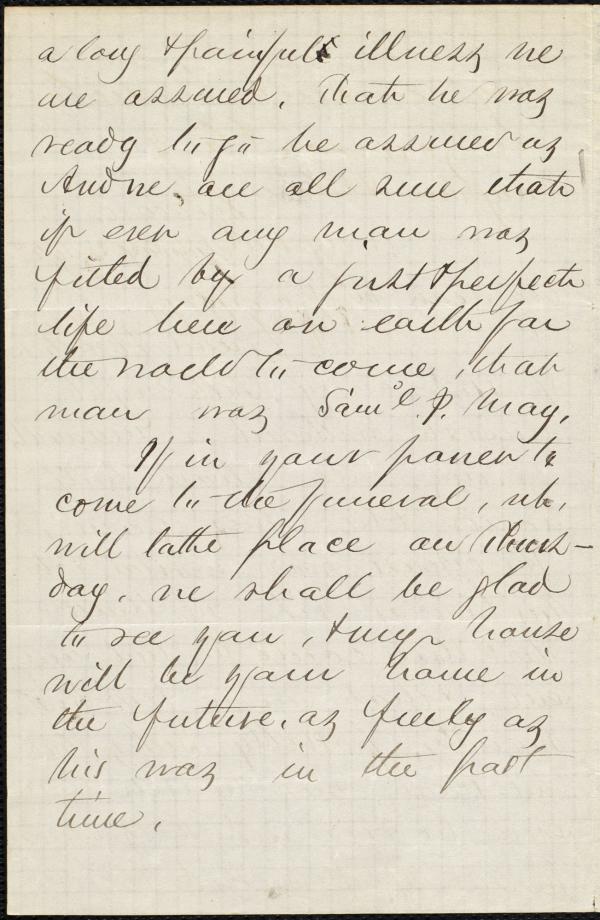 a long & painful illness we
are assured, that he was
ready to go he assured us
And we are all sure that
if ever any man was
fitted by a just & perfect
life here on earth for
the world to come, that
man was Sam'l. J. May.
If in your power to
come to the funeral, wh.
will take place on Thurs-
day, we shall be glad
to see you, & my house
will be your home in
the future, as freely as
his was in the past
time.